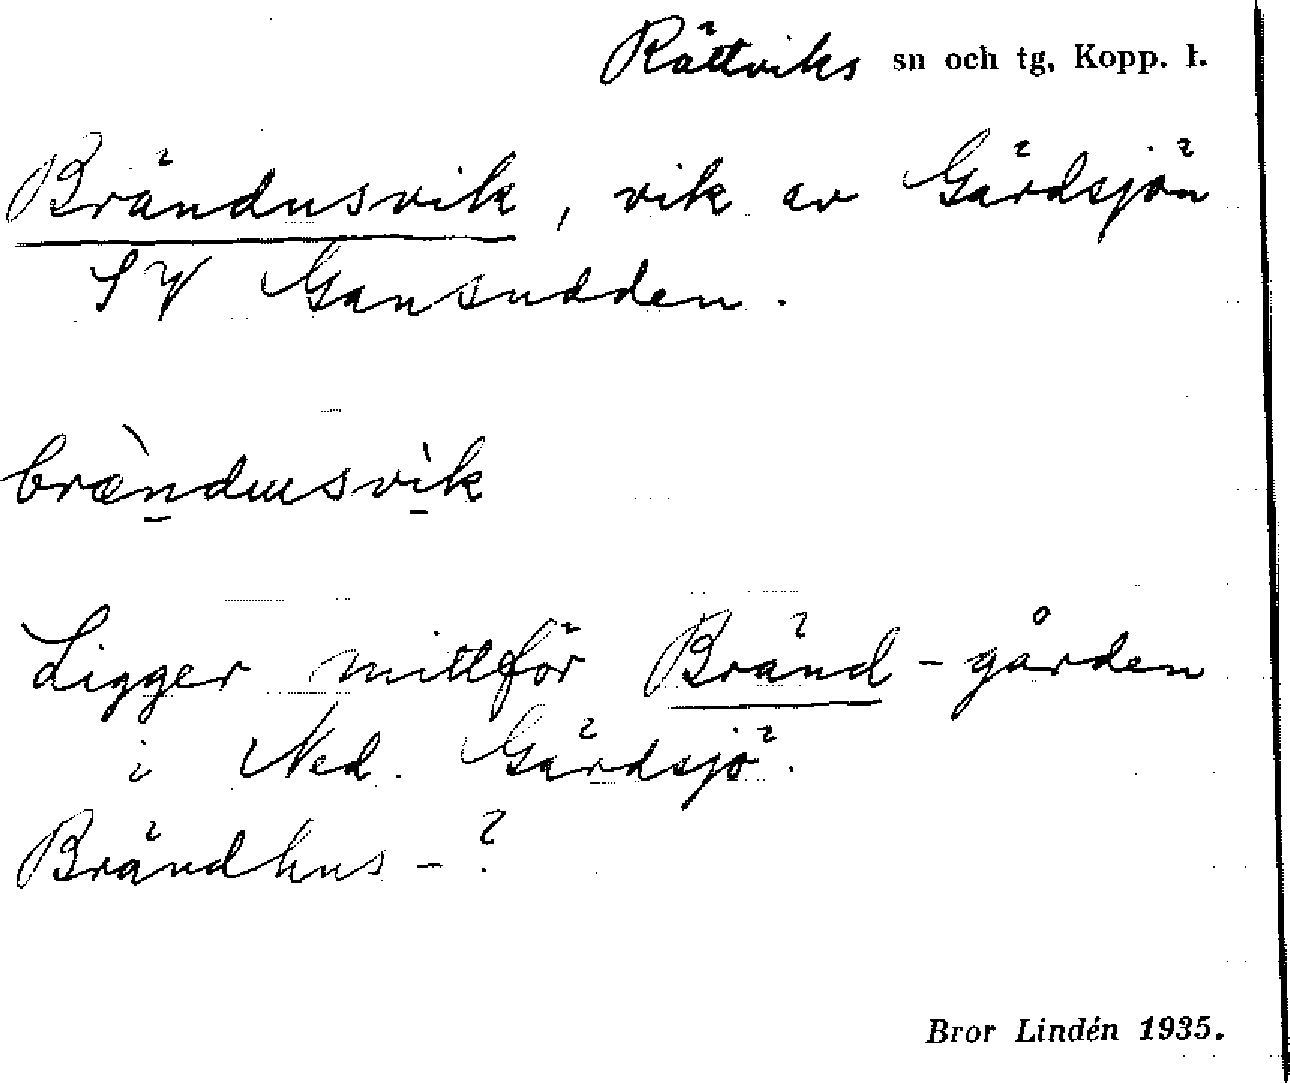 Rättviks sn och tg, Kopp. l.
Brändusvik, vik av Gärdsjön
SV Gansudden.
brændusvik
Ligger mittför Bränd-gården
i Ned. Gärdsjö.
Brändhus-?
Bror Lindén 1935.